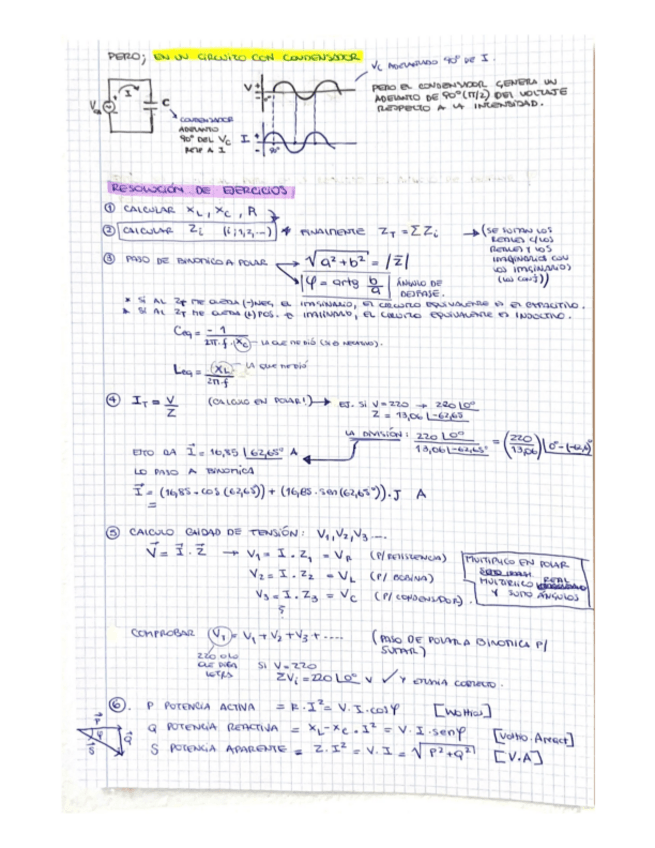 PERO; EN UN CIRCUITO CON CONDENSADOR
VC ADELANTADO 90° DE I.
PERO EL CONDENSADOR GENERA UN
ADELANTO DE 90° (π/2) DEL VOLTAJE
RESPECTO A LA INTENSIDAD.
I
C
CONDENSADOR
ADELANTO
90° DEL VC
RETE A I
V
I
90°
RESOLUCIÓN DE EJERCICIOS
① CALCULAR XL, XC, R
② CALCULAR Zi (i; 1, 2, ...) FINALMENTE ZT = ΣZi → (SE SUMAN LOS
REALES C/LOS
REALES Y LOS
IMAGINARIOS CON
LOS IMAGINARIOS)
③ PASO DE BINOMICO A POLAR √a²+b² = |Z̄|
φ = artg b/a ÁNGULO DE
DESFASE.
* SI AL ZT ME QUEDA (-)NEG, EL IMAGINARIO, EL CIRCUITO EQUIVALENTE ES CAPACITIVO.
* SI AL ZT ME QUEDA (+)POS. IMAGINARIO, EL CIRCUITO EQUIVALENTE ES INDUCTIVO.
Ceq = -1 / 2π.f.(XC) – LA QUE ME DIÓ (SI ES NEGATIVO).
Leq = XL / 2π.f – LA QUE ME DIÓ
④ IT = V/Z (CALCULO EN POLAR!) → EJ. SI V=220 → 220 ∠0°
Z = 13,06 ∠-62,65
LA DIVISIÓN: 220 ∠0° / 13,06 ∠-62,65° = (220/13,06) ∠0°-(-62,6)°
ESTO DA I⃗ = 16,85 ∠62,65° A
LO PASO A BINOMICA
I⃗ = (16,85 . cos (62,65)) + (16,85 . sen (62,65°)).J A
=
⑤ CALCULO CAIDAD DE TENSIÓN: V1, V2, V3 ....
V⃗ = I⃗ . Z⃗ → V1 = I . Z1 = VR (P/RESISTENCIA)
V2 = I . Z2 = VL (P/ BOBINA)
V3 = I . Z3 = VC (P/CONDENSADOR).
MULTIPLICO EN POLAR
MULTIPLICO REAL
Y SUMO ÁNGULOS
COMPROBAR V1 = V1 + V2 + V3 + .... (PASO DE POLAR A BINOMICA P/
SUMAR)
220 O LO
QUE DIGA
LETRA
SI V=220
ΣVi = 220 ∠0° V ✓ Y ESTARIA CORRECTO.
⑥. P POTENCIA ACTIVA = R . I² = V . I . cosφ [Wattios]
Q POTENCIA REACTIVA = XL-XC . I² = V . I . senφ [Voltio. Ampreact]
S POTENCIA APARENTE = Z . I² = V . I = √P²+Q² [V.A]
P⃗
φ
Q⃗
S⃗